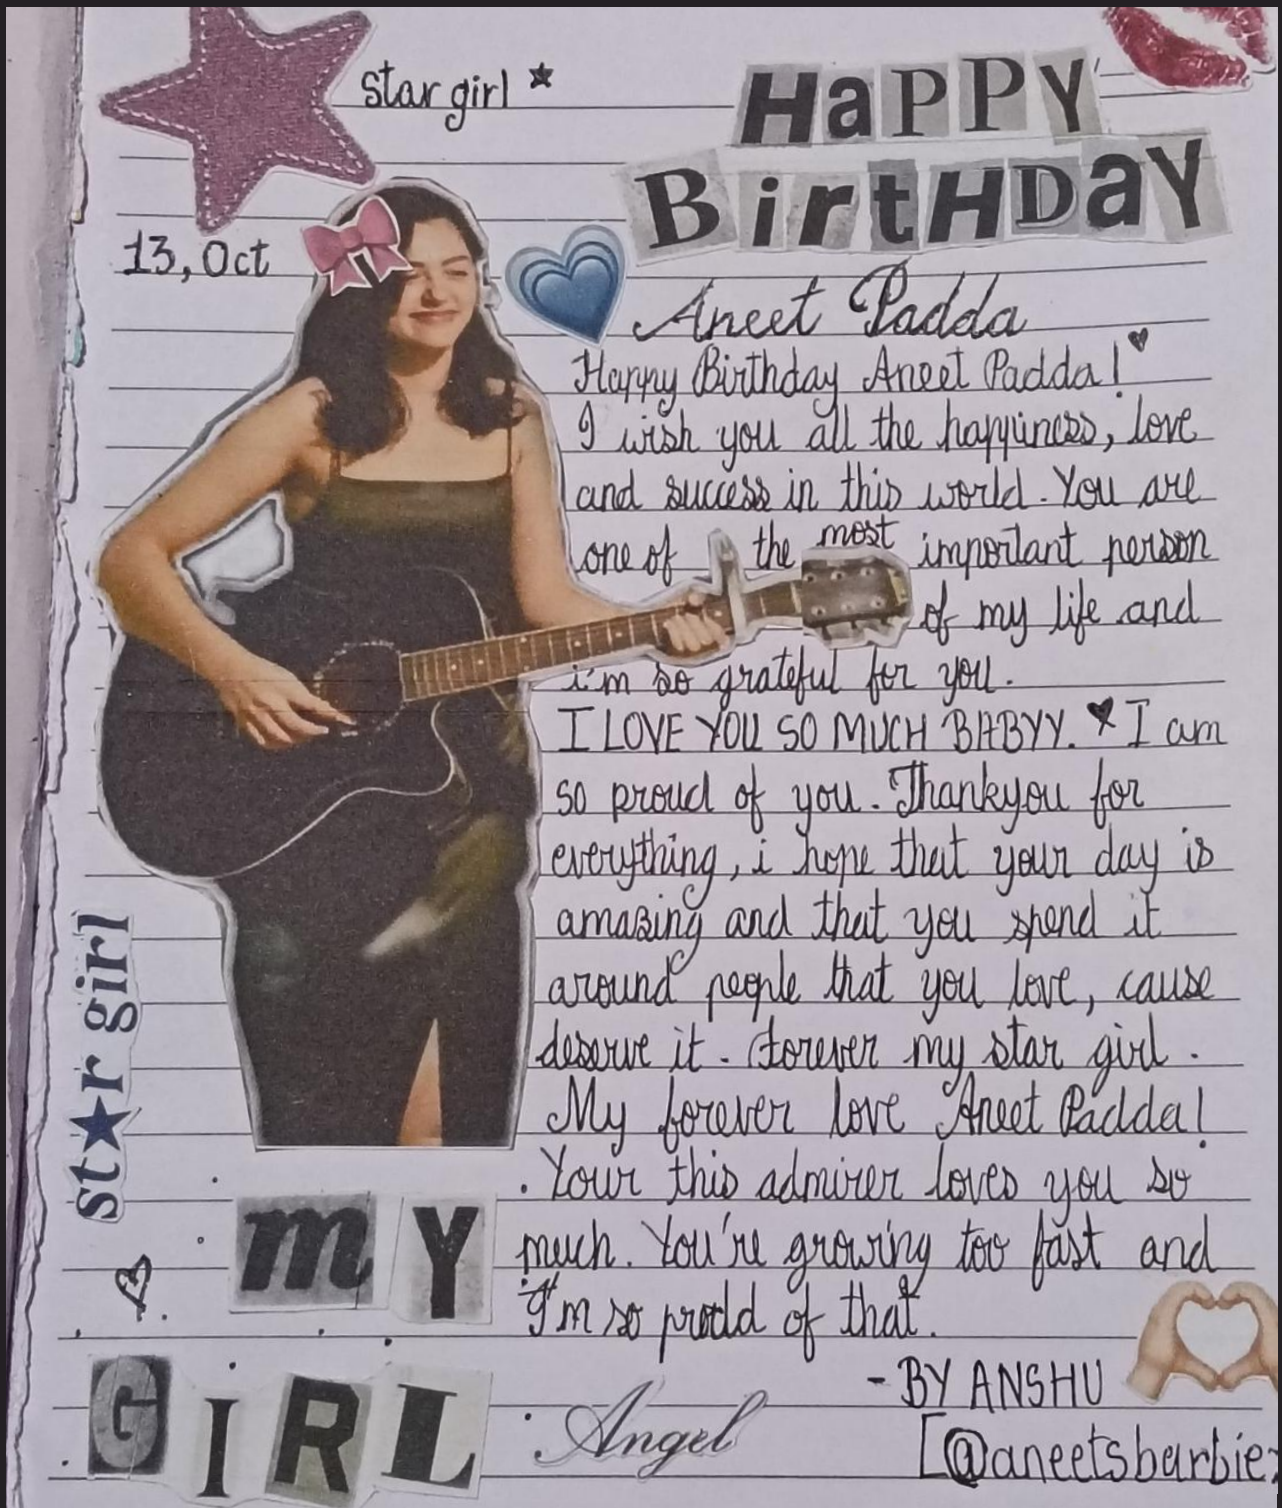 star girl
HaPPY
BirtHDaY
13, Oct
Aneet Padda
Happy Birthday Aneet Padda!
I wish you all the happiness, love
and success in this world. You are
one of the most important person
of my life and
i'm so grateful for you.
I LOVE YOU SO MUCH BABYY. I am
so proud of you. Thankyou for
everything, i hope that your day is
amazing and that you spend it
around people that you love, cause
deserve it. Forever my star girl.
My forever love Aneet Padda!
Your this admirer loves you so
much. You're growing too fast and
I'm so proud of that.
- BY ANSHU
[@aneetsbarbie
st★r girl
mY
GiRL
Angel